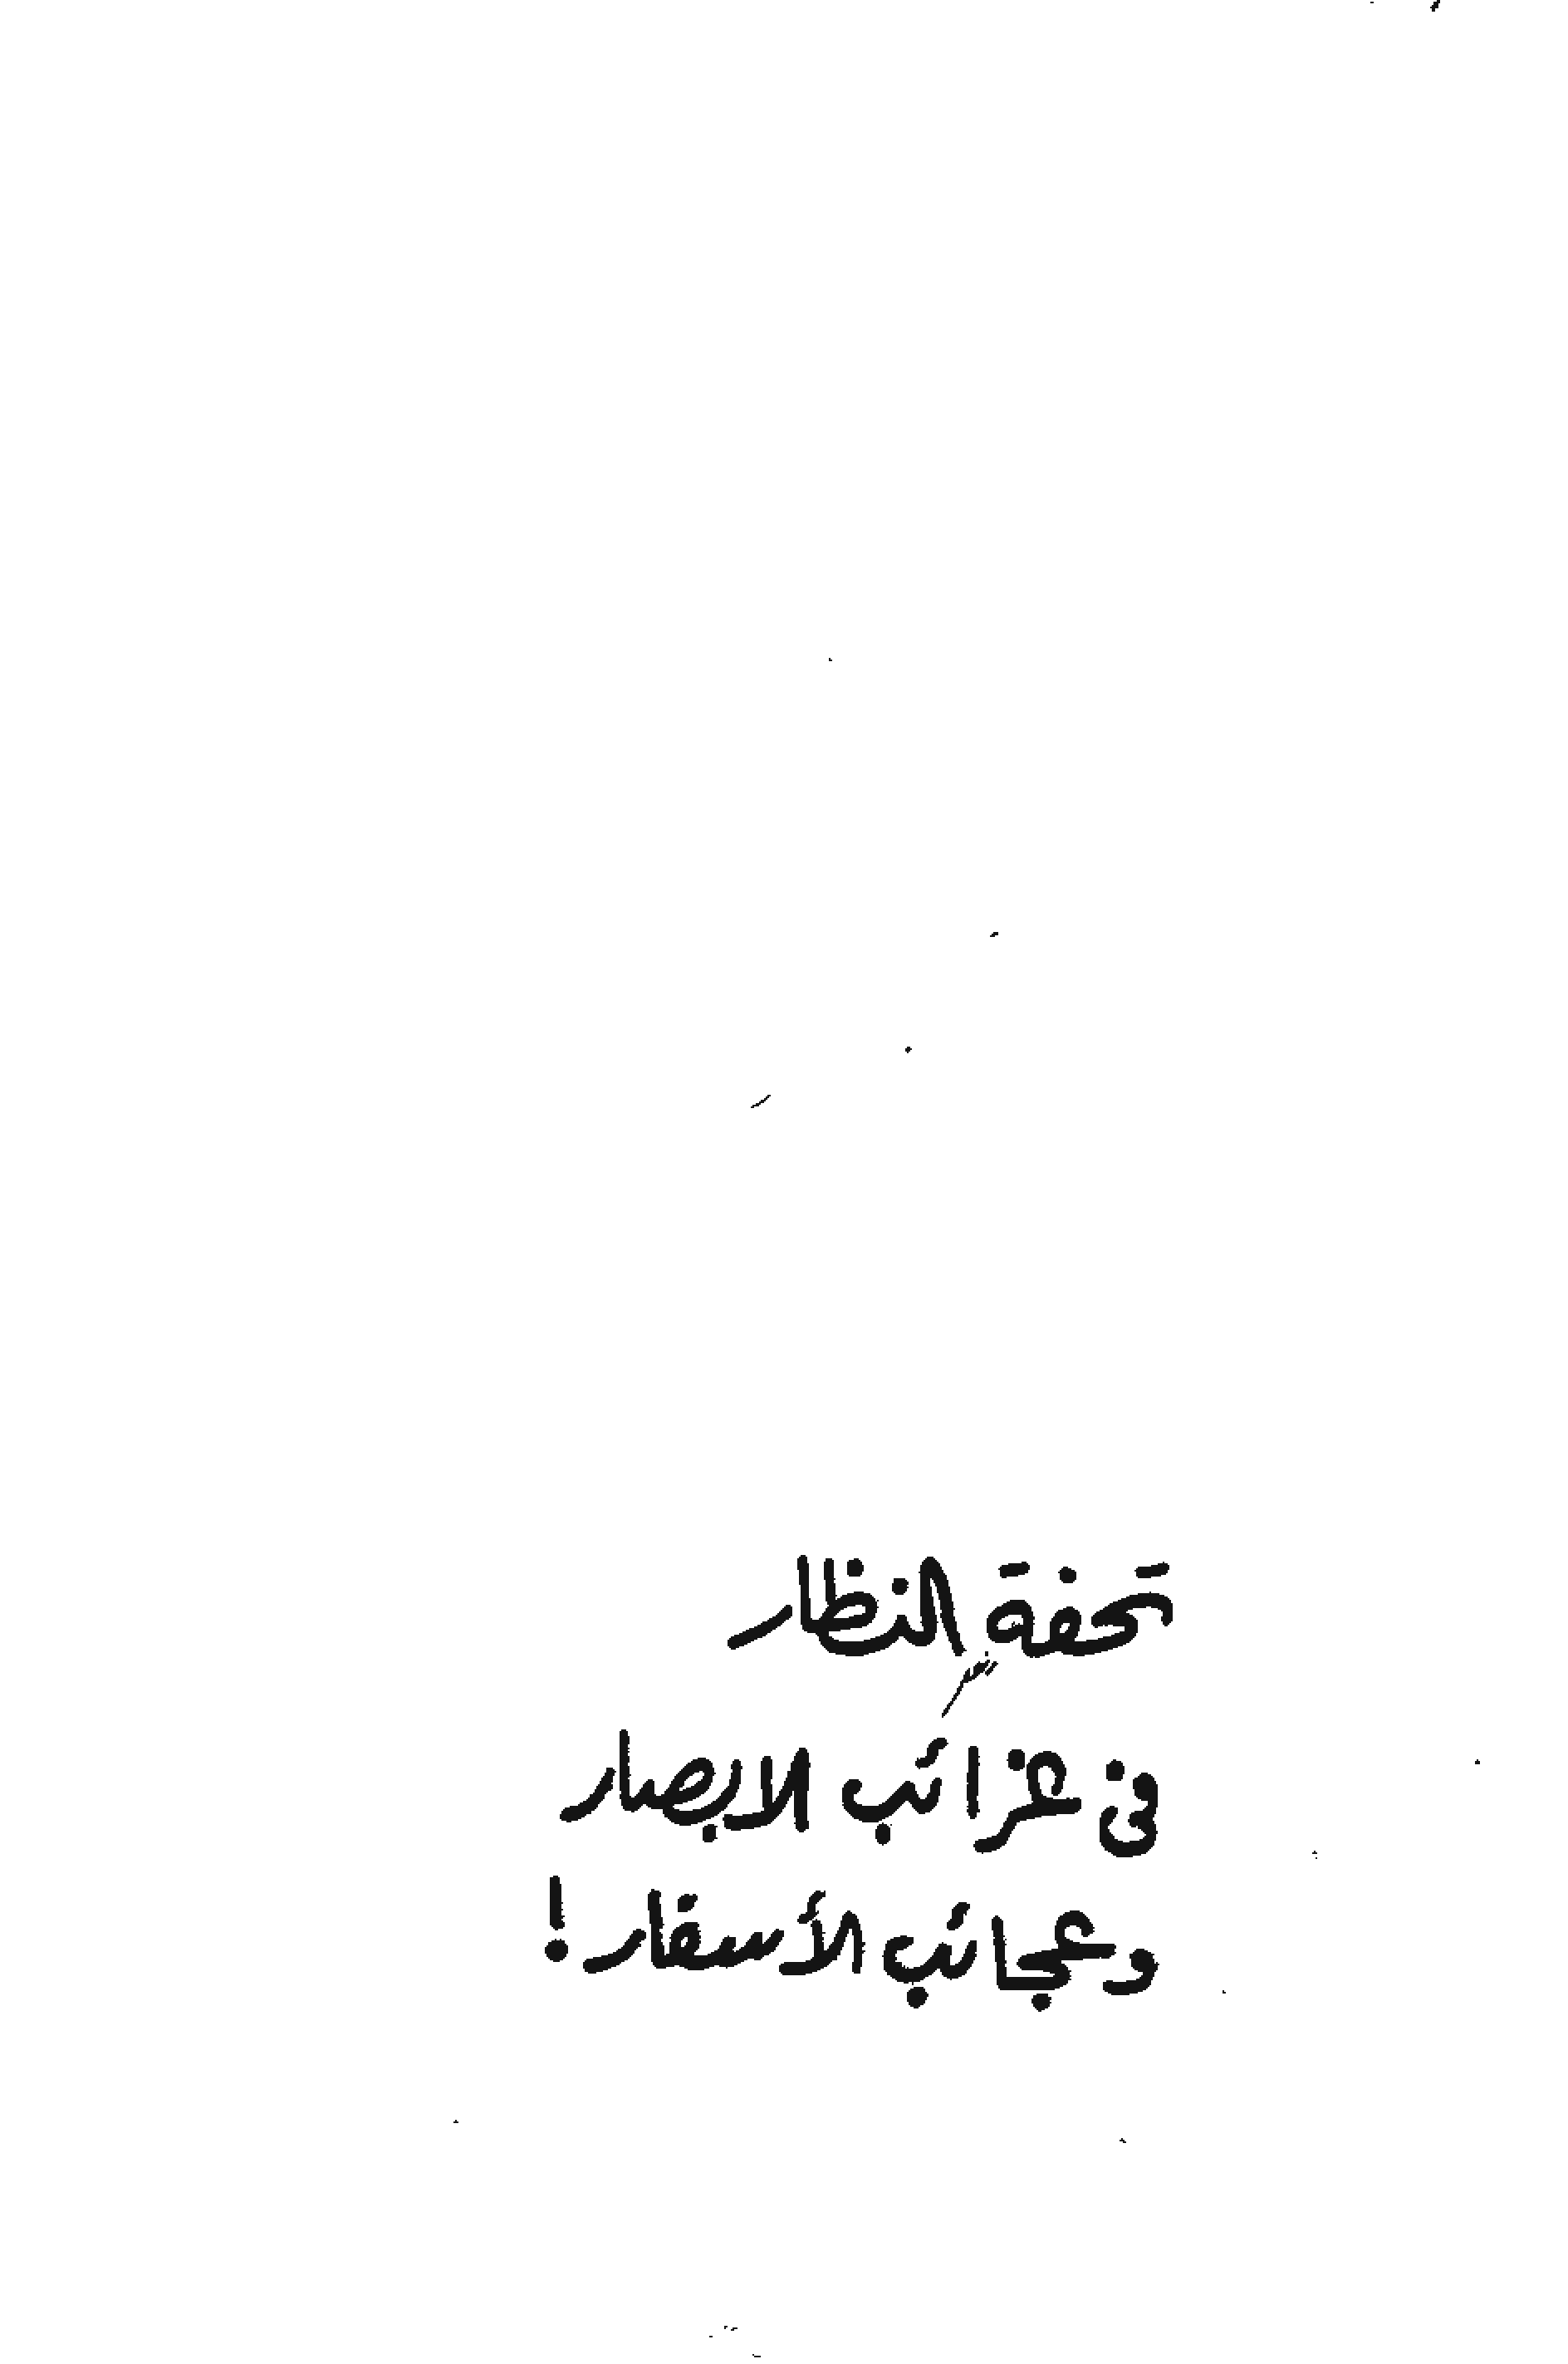 تحفة النظار
فى غرائب الابصار
وعجائب الأسفار !